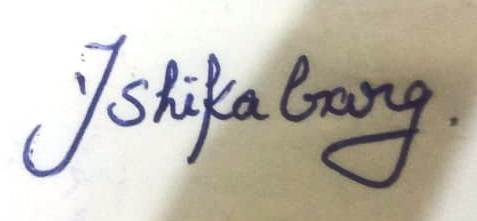 Ishika Garg.